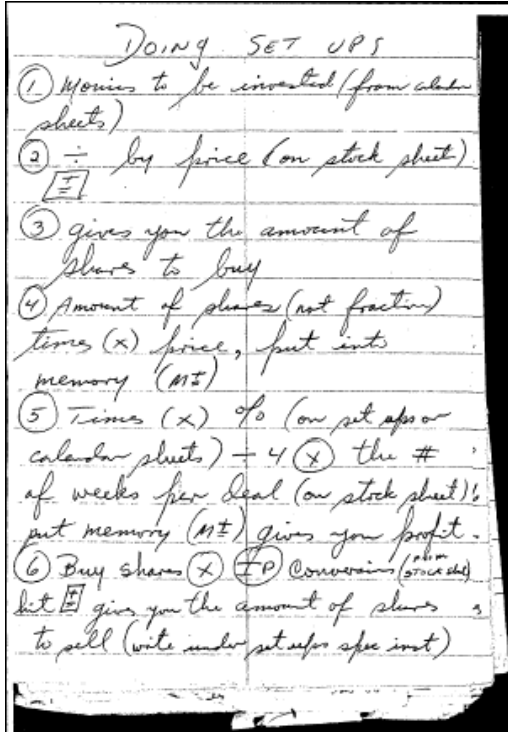 DOING SET UPS
① Monies to be invested (from calandar
sheets)
② ÷ by price (on stock sheet)
[±]
③ gives you the amount of
shares to buy
④ Amount of shares (not fraction)
times (x) price, put into
memory (M±)
⑤ Times (x) % (on set ups or
calandar sheets) ÷ 4 (x) the #
of weeks per deal (on stock sheet)
put memory (M±) gives you profit.
⑥ Buy shares (x) IP Conversion (from
STOCK sheet)
hit [±] gives you the amount of shares
to sell (write under set ups spec inst)